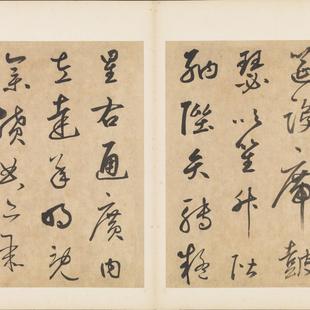 筵設席鼓
瑟吹笙升階
納陛弁轉疑
星右通廣內
左達承明既
集墳典亦聚